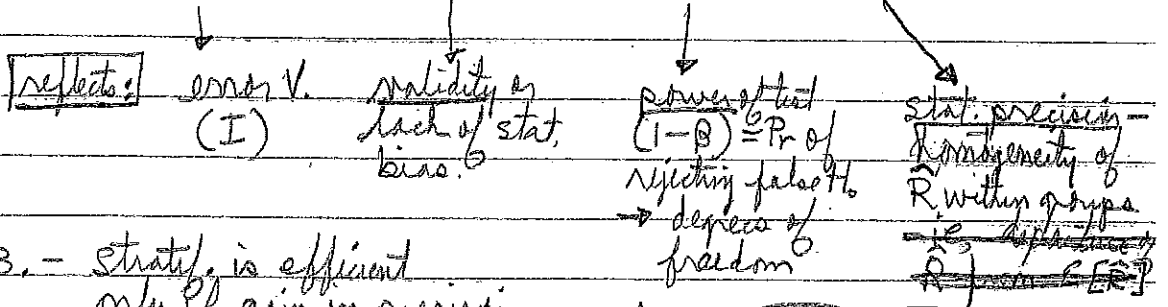 reflects:
error V.
(I)
validity or
lack of stat.
bias.
power of test
(1-β) = Pr of
rejecting false H₀
→ degrees of
freedom
stat. precision -
homogeneity of
R̂ within groups
i.e.
R̂ [R̂]
B. - Stratif. is efficient
only if gain in precision